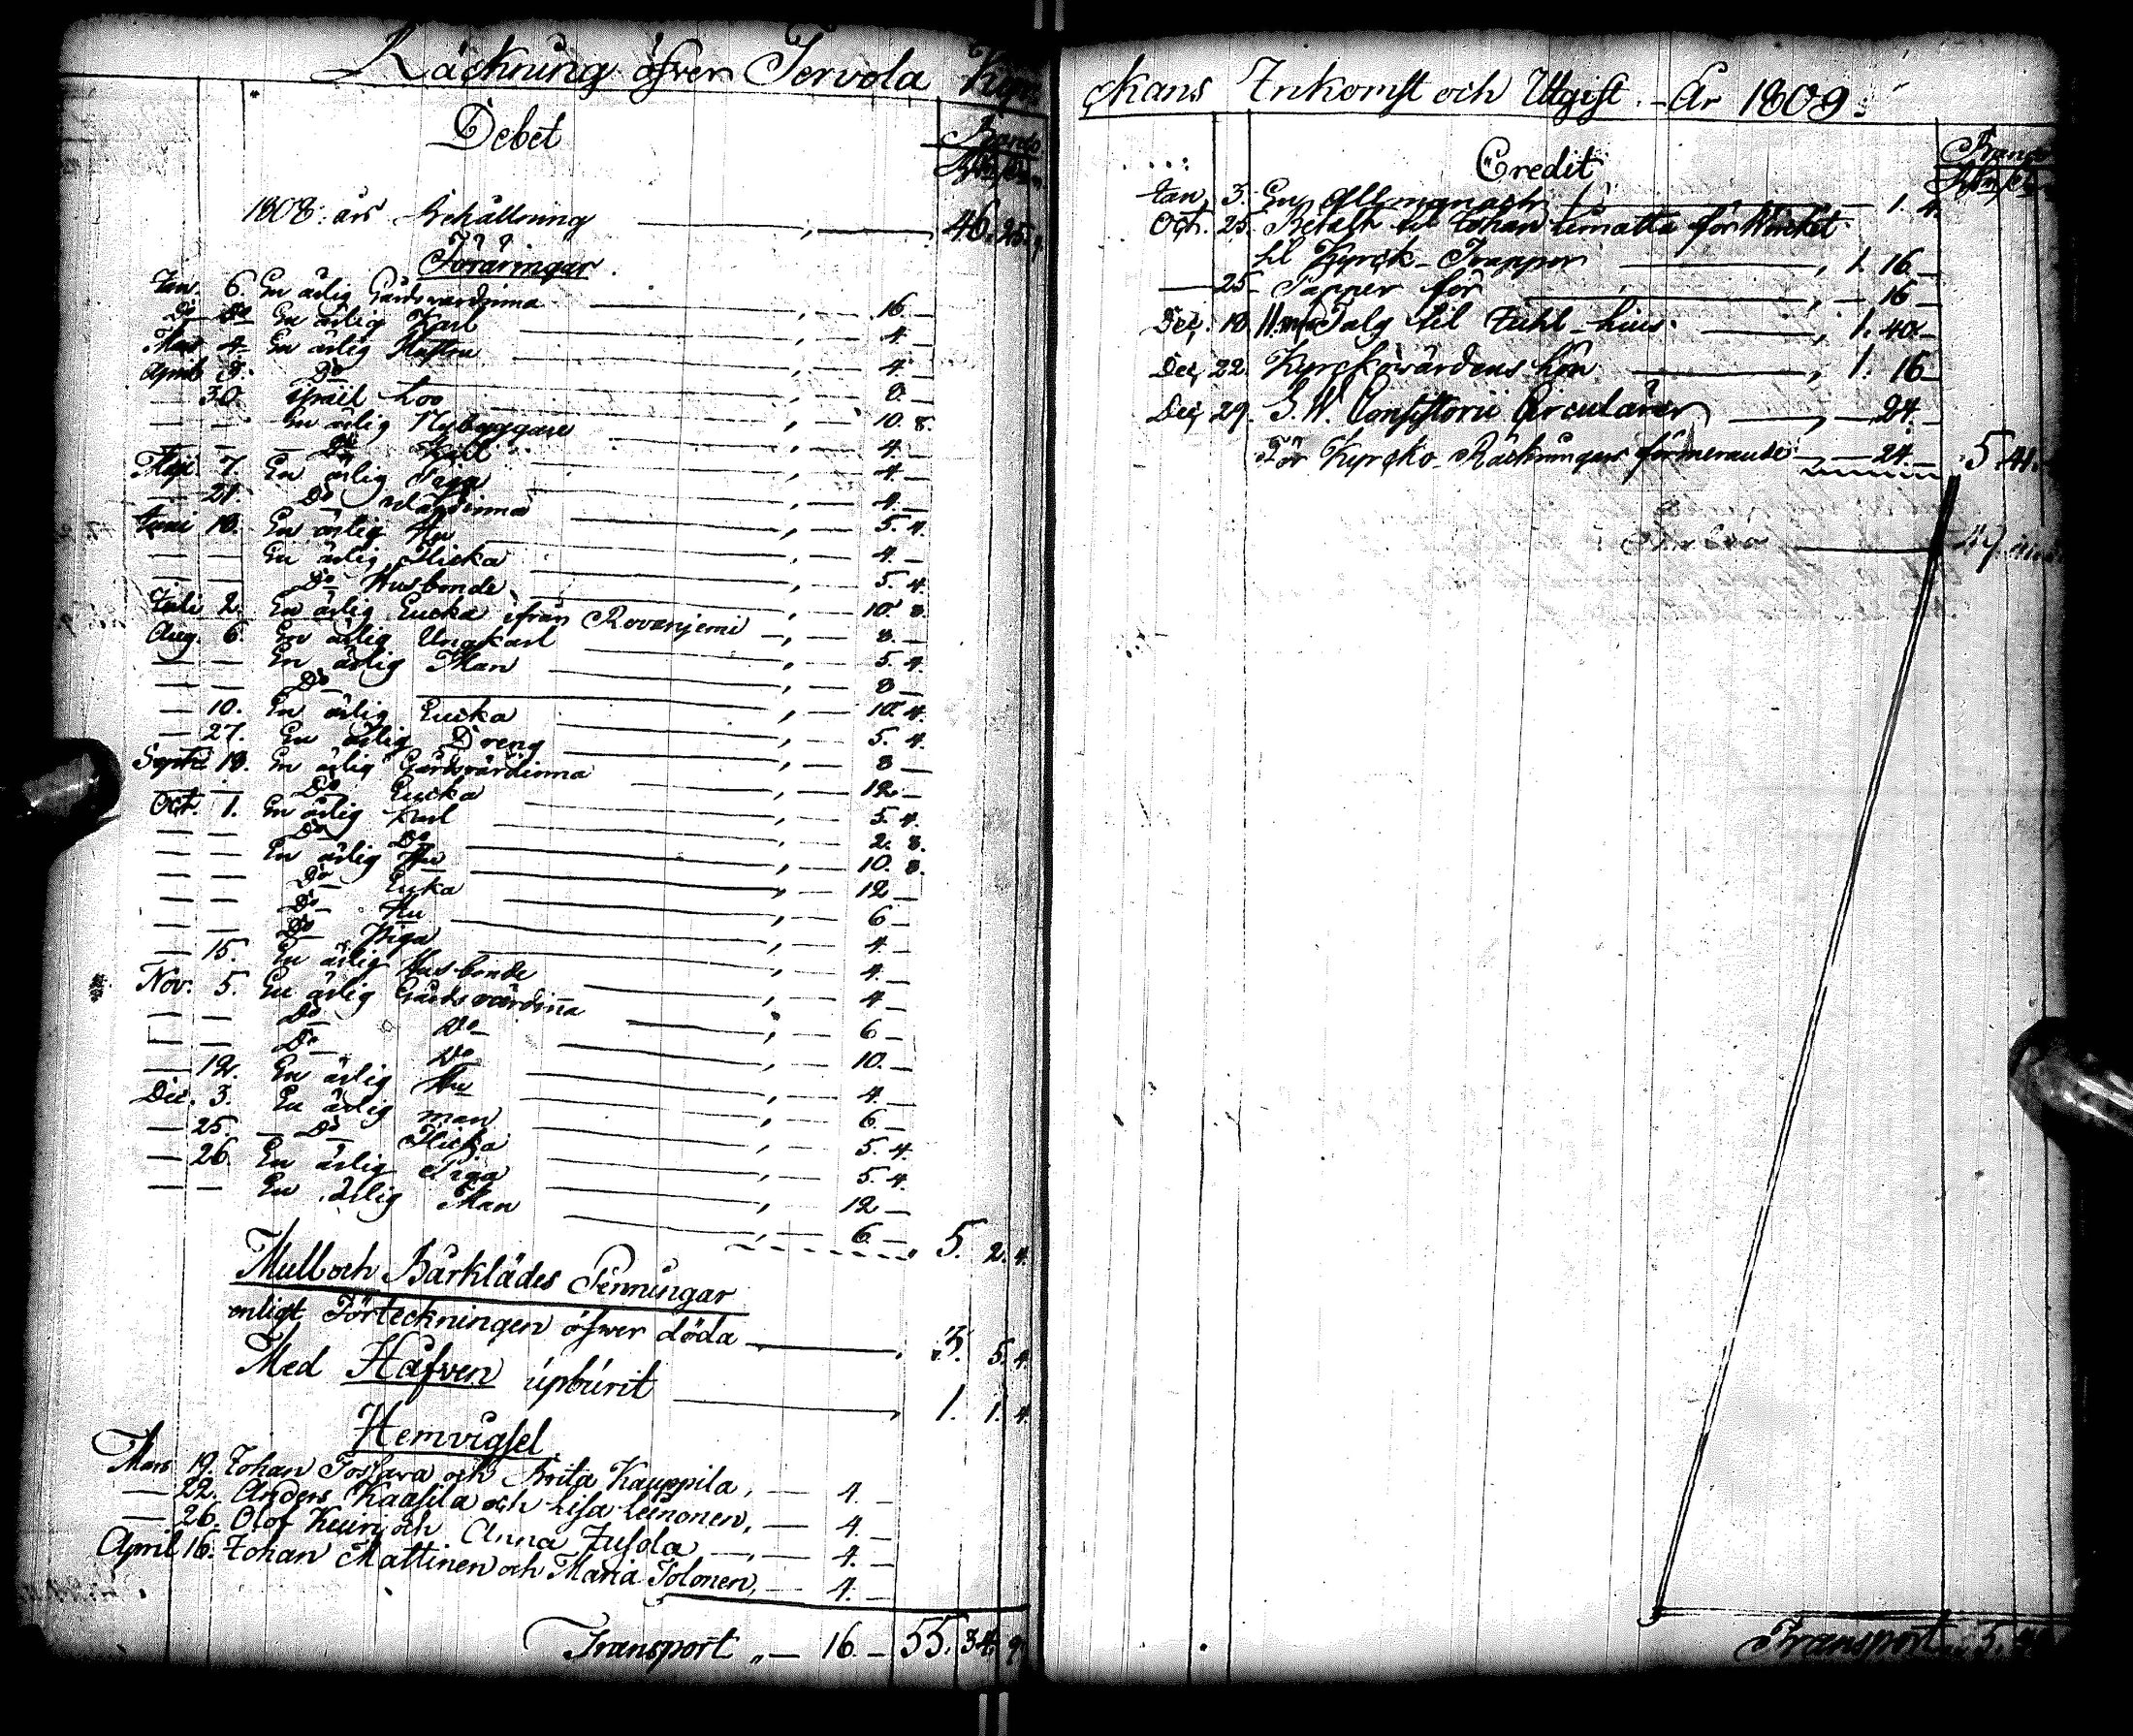 Räckning öfver Tervola Kyr-
Debet
Banco
1808. års Behållning — 46. 25. 9.
Föräringar.
Jan. 6. En ärlig Gårdsvärdinna — 16. —
Do Do En ärlig Karl — 4. —
Mars 4. En ärlig — 4. —
April 9. Do — 8. —
— 30. Israel Loo — 10. 8.
— — En ärlig Nybyggare — 4. —
— — Do — 4. —
Maji 7. En ärlig Piga — 4. —
— 21. Do Värdinna — 5. 4.
Juni 18. En ärlig Hu — 4. —
— — En ärlig Flicka — 5. 4.
— — Do Husbonde — 10. 8.
Juli 2. En ärlig Encka ifrån Rovanjemi — 8. —
Aug. 6. En ärlig Ungkarl — 5. 4.
— — En ärlig Man — 8 —
— — Do — 10. 4.
— 10. En ärlig Encka — 5. 4.
— 27. En ärlig Dreng — 8 —
Septr. 18. En ärlig Gårdsvärdinna — 12 —
— — Do Encka — 5. 4.
Oct. 1. En ärlig Karl — 2. 8.
— — Do Do — 10. 8.
— — En ärlig Hu — 12 —
— — Do Enka — 6 —
— — Do Hu — 4. —
— — Do Piga — 4. —
— 15. En ärlig Husbonde — 4 —
Nov. 5. En ärlig Gårdsvärdinna — 6 —
— — Do Do — 10. —
— — Do Do — 4. —
— 12. En ärlig Hu — 6. —
Dec. 3. En ärlig man — 5. 4.
— 25. — Do Flicka — 5. 4.
— 26. En ärlig Piga — 12 —
— — En ärlig Man — 6. — 5. 2. 4.
Mull och Bårklädes Penningar
enligt Förteckningen öfwer döda — 3. 5. 4.
Med Håfven upburit — 1. 1. 4.
Hemvigsel
Mars 19. Johan och Brita Kauppila, — 4. —
— 22. Anders Kaasila och Lisa Leinonen, — 4. —
— 26. Olof och Anna Jusola — 4. —
April 16. Johan Mattinen och Maria Tolonen, — 4. —
Transport „ — 16. — 55. 34. 9.
ckans Inkomst och Utgift. – År 1809.
Credit
Banco
Jan. 3. En Allmanach — 1. 4.
Oct. 25. Betalt til Johan Liimatta för Wirket
til Kyrck-Trappor — 1. 16 —
— 25 Papper för — 16 —
Dec. 18. 11 Talg til Juhl-Lius. — 1. 40. —
Dec. 22. Kyrckowärdens Lön — 1. 16 —
Dec. 29. G. W. Consistorii Circulairer — 24. —
För Kyrcko-Räckningens formerande — 24. — 5. 41.
Transport 5.